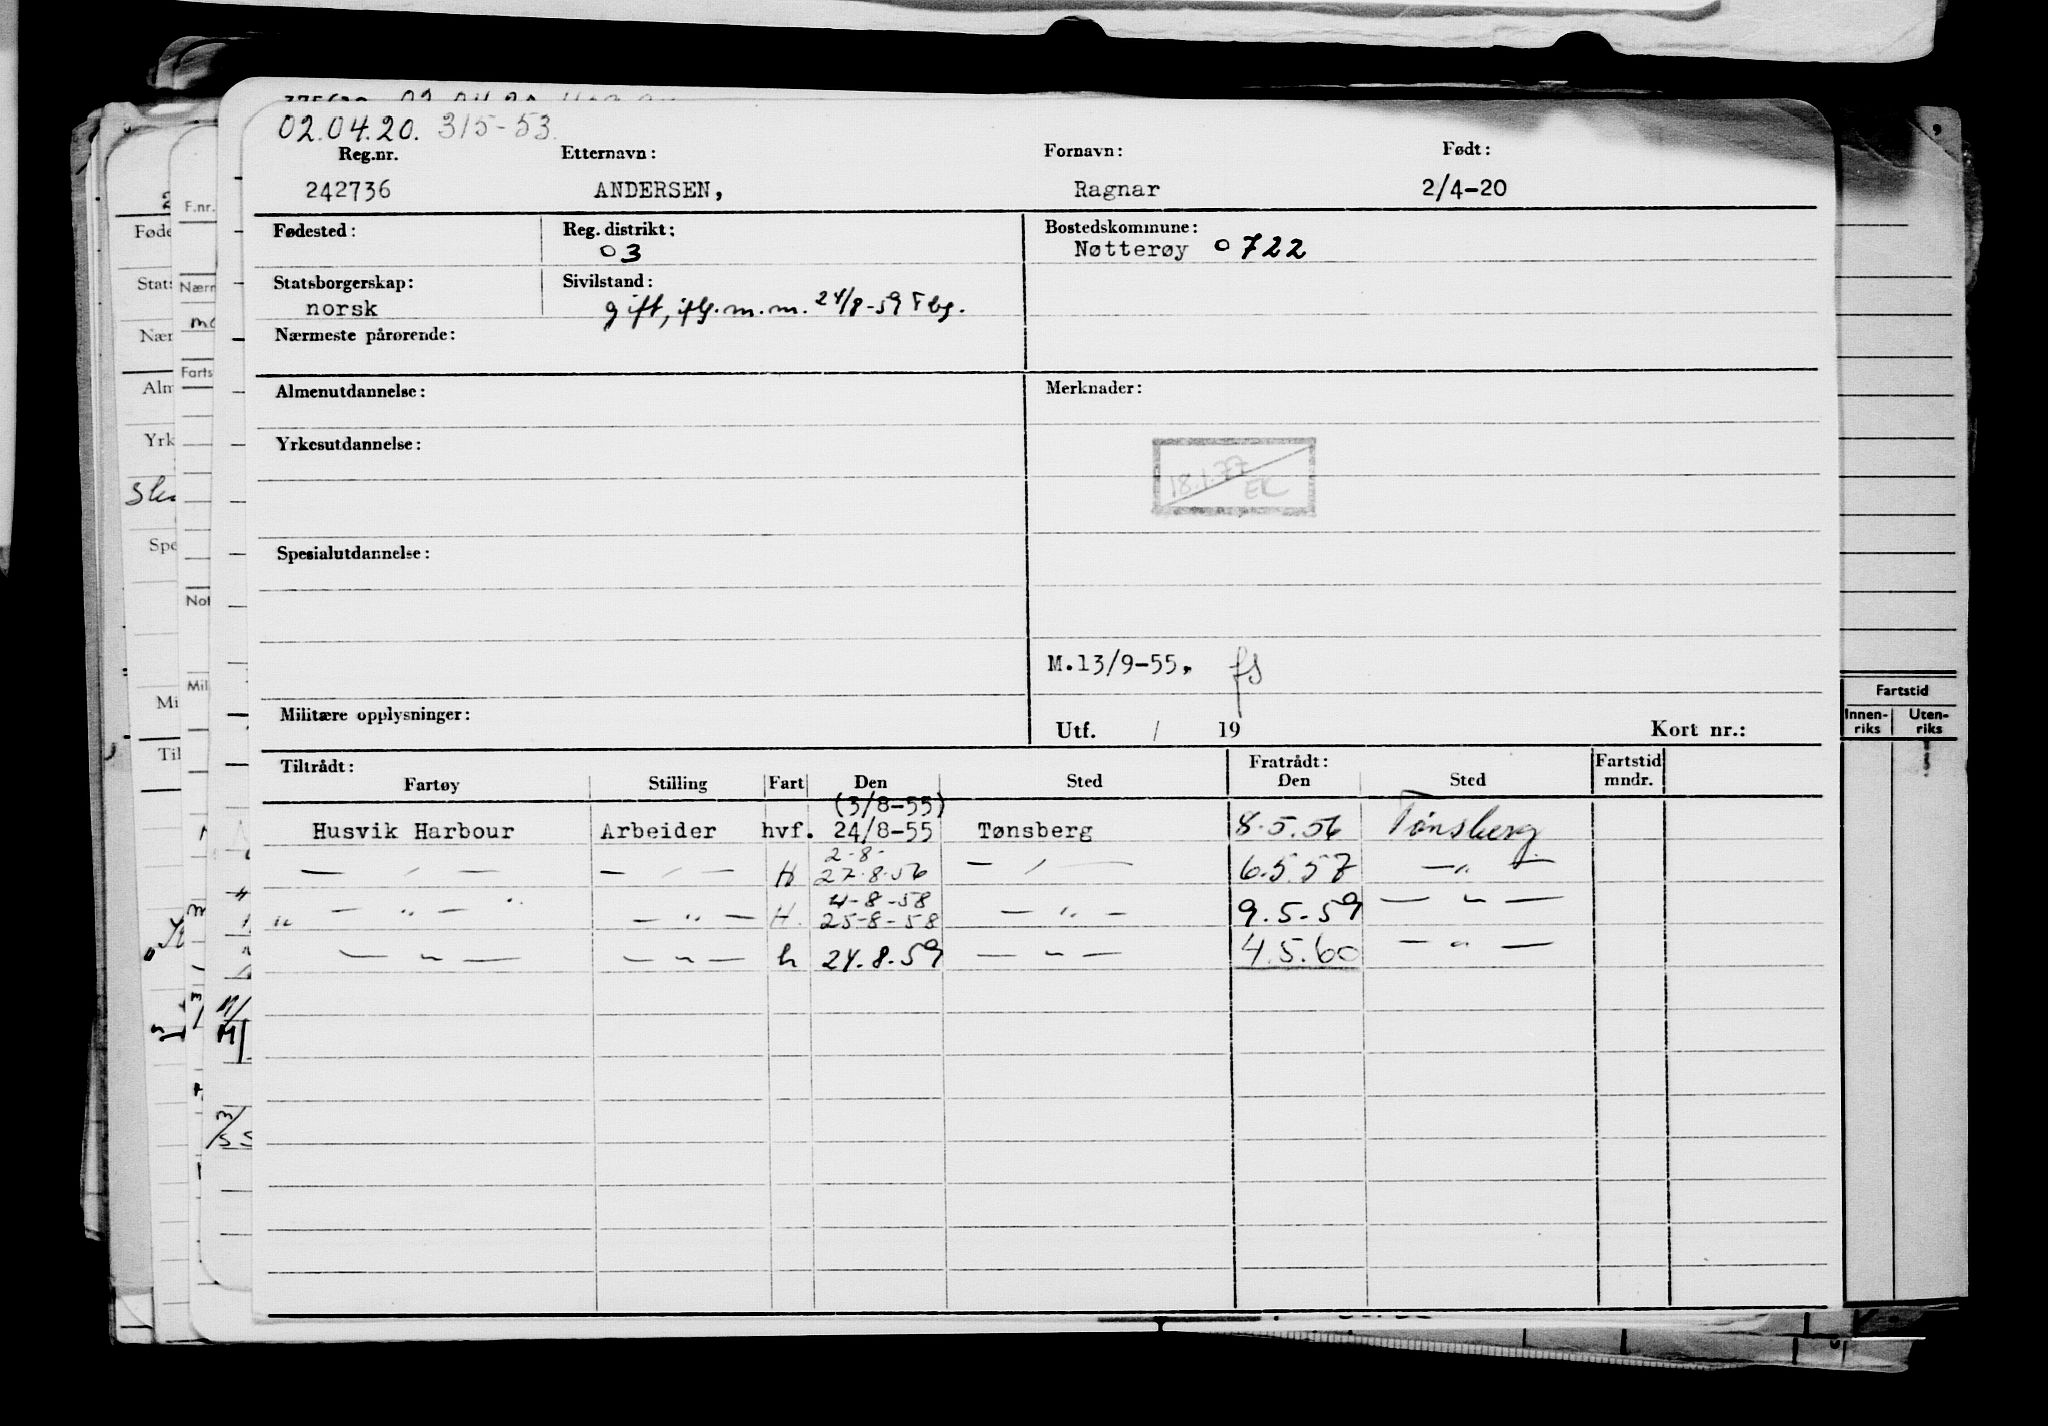 02.04.20. 315-53.
Reg.nr. Etternavn: Fornavn: Født:
242736 ANDERSEN, Ragnar 2/4-20
Fødested: Reg. distrikt: Bostedskommune:
03 Nøtterøy 0722
Statsborgerskap: Sivilstand:
norsk gift, iflg. m.m. 24/8-59 Tbg.
Nærmeste pårørende:
Almenutdannelse: Merknader:
Yrkesutdannelse:
18.1.77 EK
Spesialutdannelse:
M.13/9-55. fs
Militære opplysninger: Utf. / 19 Kort nr.:
Tiltrådt: Fratrådt: Fartstid
Fartøy Stilling Fart Den Sted Den Sted mndr.
(3/8-55)
Husvik Harbour Arbeider hvf. 24/8-55 Tønsberg 8.5.56 Tønsberg
2-8-
— / — — / — H 27.8.56 — / — 6.5.57 — „ —
4-8-58
„ — „ — „ — „ — H. 25-8-58 — „ — 9.5.59 — „ —
— „ — — „ — h 24.8.59 — „ — 4.5.60 — „ —
F.nr.
Fartstid
Innen-riks Uten-riks